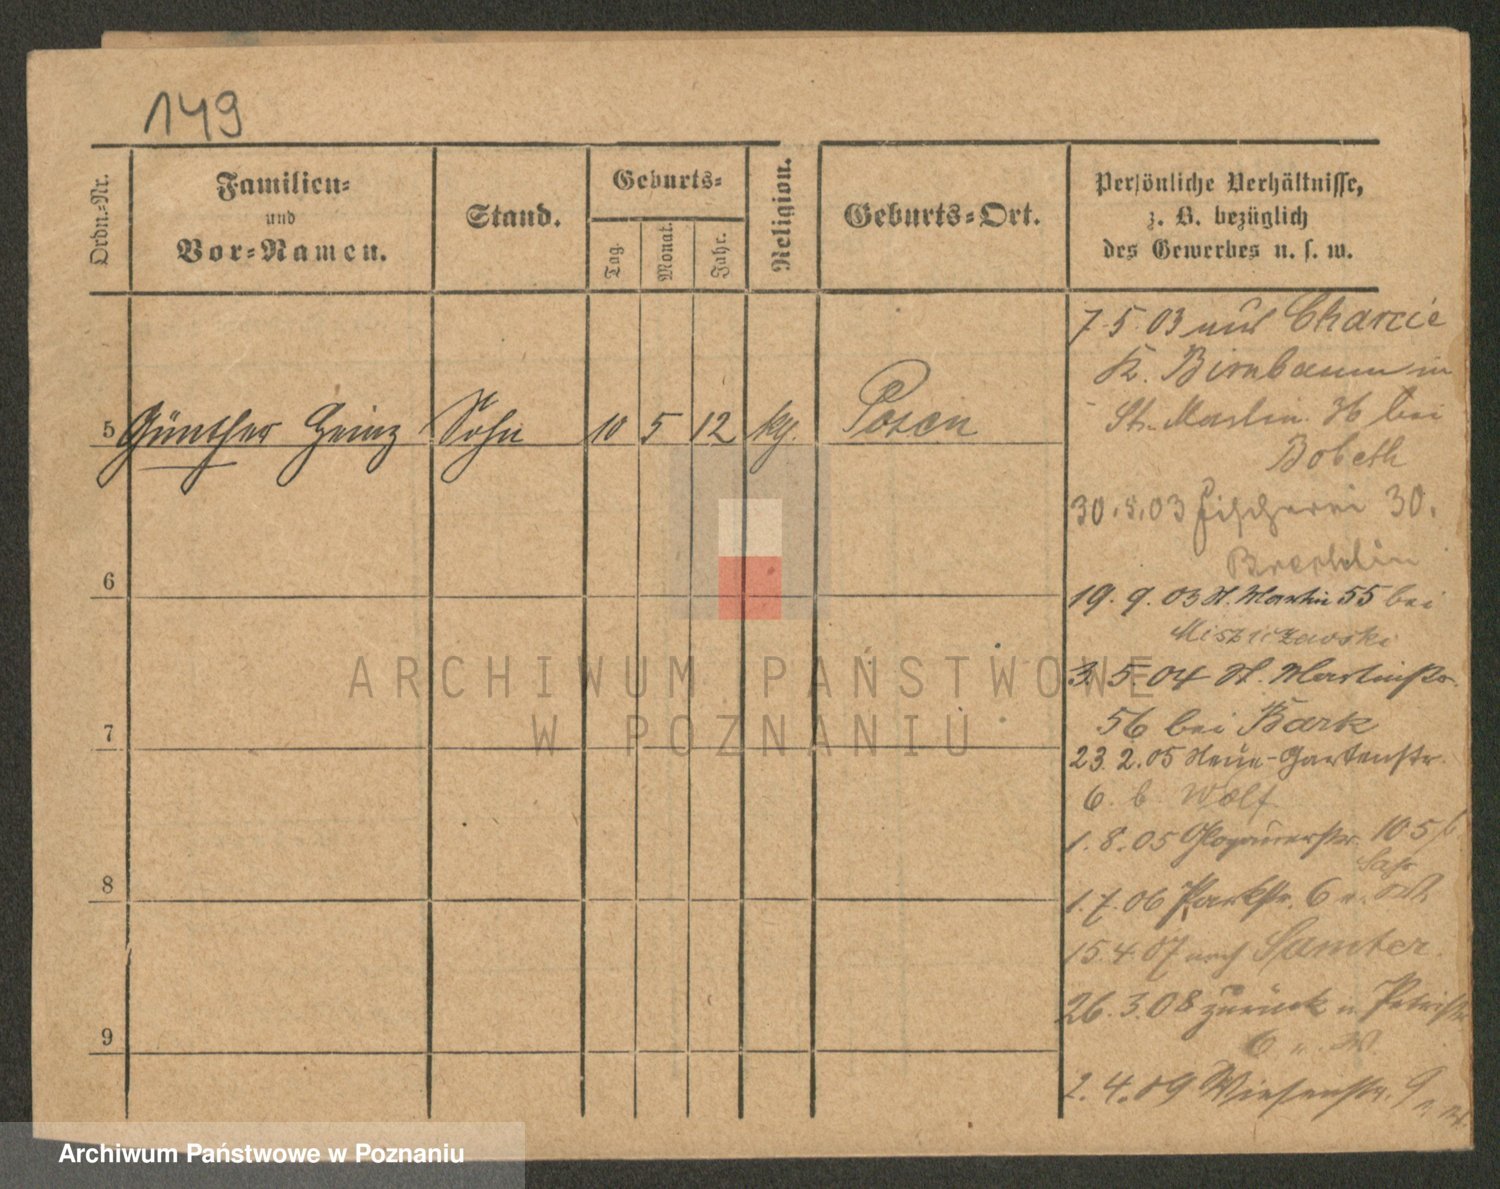 149
Ordn.-Nr.
Familien-
und
Vor-Namen.
Stand.
Geburts-
Tag.
Monat.
Jahr.
Religion.
Geburts-Ort.
Persönliche Verhältnisse,
z. B. bezüglich
des Gewerbes u. s. w.
5 Günther Heinz Sohn 10 5 12 kg. Posen
6
7
8
9
7.5.03 aus Charcic
K. Birnbaum in
St. Martin 36 bei
Bobeth
30.5.03 Fischerei 30.
19.9.03 St. Martin 55 bei
3.5.04 St. Martinstr.
56 bei Bark
23.2.05 Neue-Gartenstr.
6 b. Wolf
1.8.05 Glogauerstr. 105
1.7.06 Parkstr. 6
15.4.07 nach Samter.
26.3.08 zurück n. Petristr
6
2.4.09 Wiesenstr. 9
ARCHIWUM PAŃSTWOWE
W POZNANIU
Archiwum Państwowe w Poznaniu